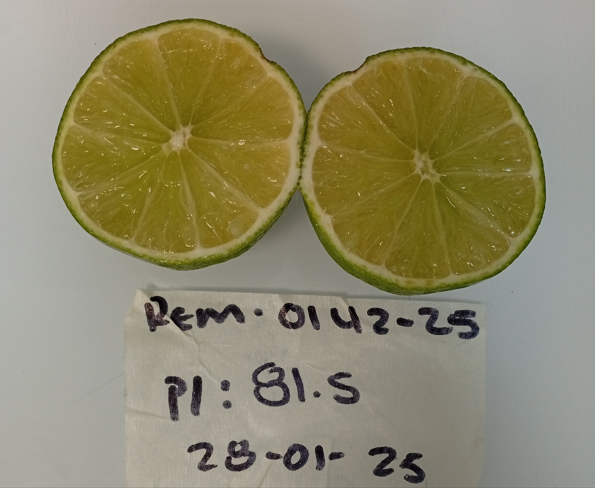 Rem-0142-25
PI: 81.5
28-01-25